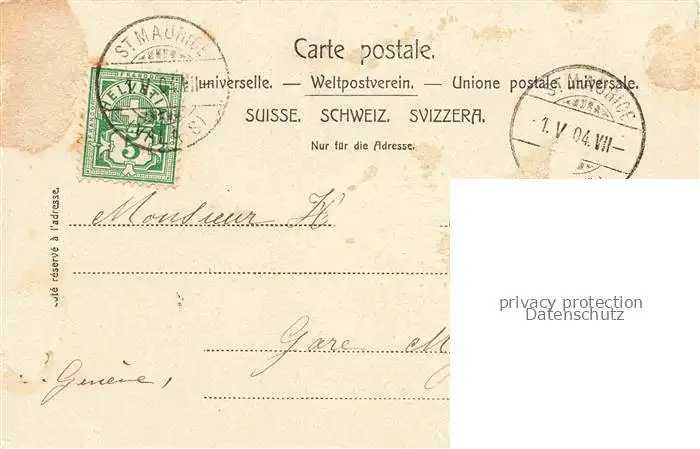 Carte postale.
universelle. — Weltpostverein. — Unione postale universale.
SUISSE. SCHWEIZ. SVIZZERA.
Nur für die Adresse.
ST MAURICE
ST MAURICE
1. V 04. VII
FRANCO
HELVETIA
5
oté réservé à l'adresse.
Monsieur H
Gare M
Genève,
privacy protection
Datenschutz